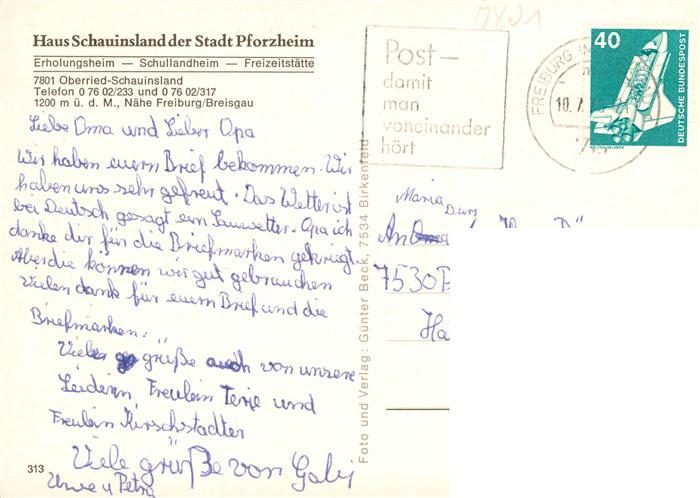 7801
Haus Schauinsland der Stadt Pforzheim
Erholungsheim — Schullandheim — Freizeitstätte
7801 Oberried-Schauinsland
Telefon 0 76 02/233 und 0 76 02/317
1200 m ü. d. M., Nähe Freiburg/Breisgau
Liebe Oma und Lieber Opa
Wir haben euern Brief bekommen. Wir
haben uns sehr gefreut. Das Wetter ist
bei Deutsch gesagt ein Sauwetter. Opa ich
danke dir für die Briefmarken gekriegt.
Aber die können wir gut gebrauchen
Vielen dank für euern Brief und die
Briefmarken.
Viele grüße auch von unsere
Leiderin, Freulein Terie und
Freulein Kirschstadter
Viele grüße von Gabi
Uwe u Petra
313
Foto und Verlag: Günter Beck, 7534 Birkenfeld
Post—
damit
man
voneinander
hört
FREIBURG
10.7.
40
DEUTSCHE BUNDESPOST
WELTRAUMLABOR
Maria
An
7530
Ha